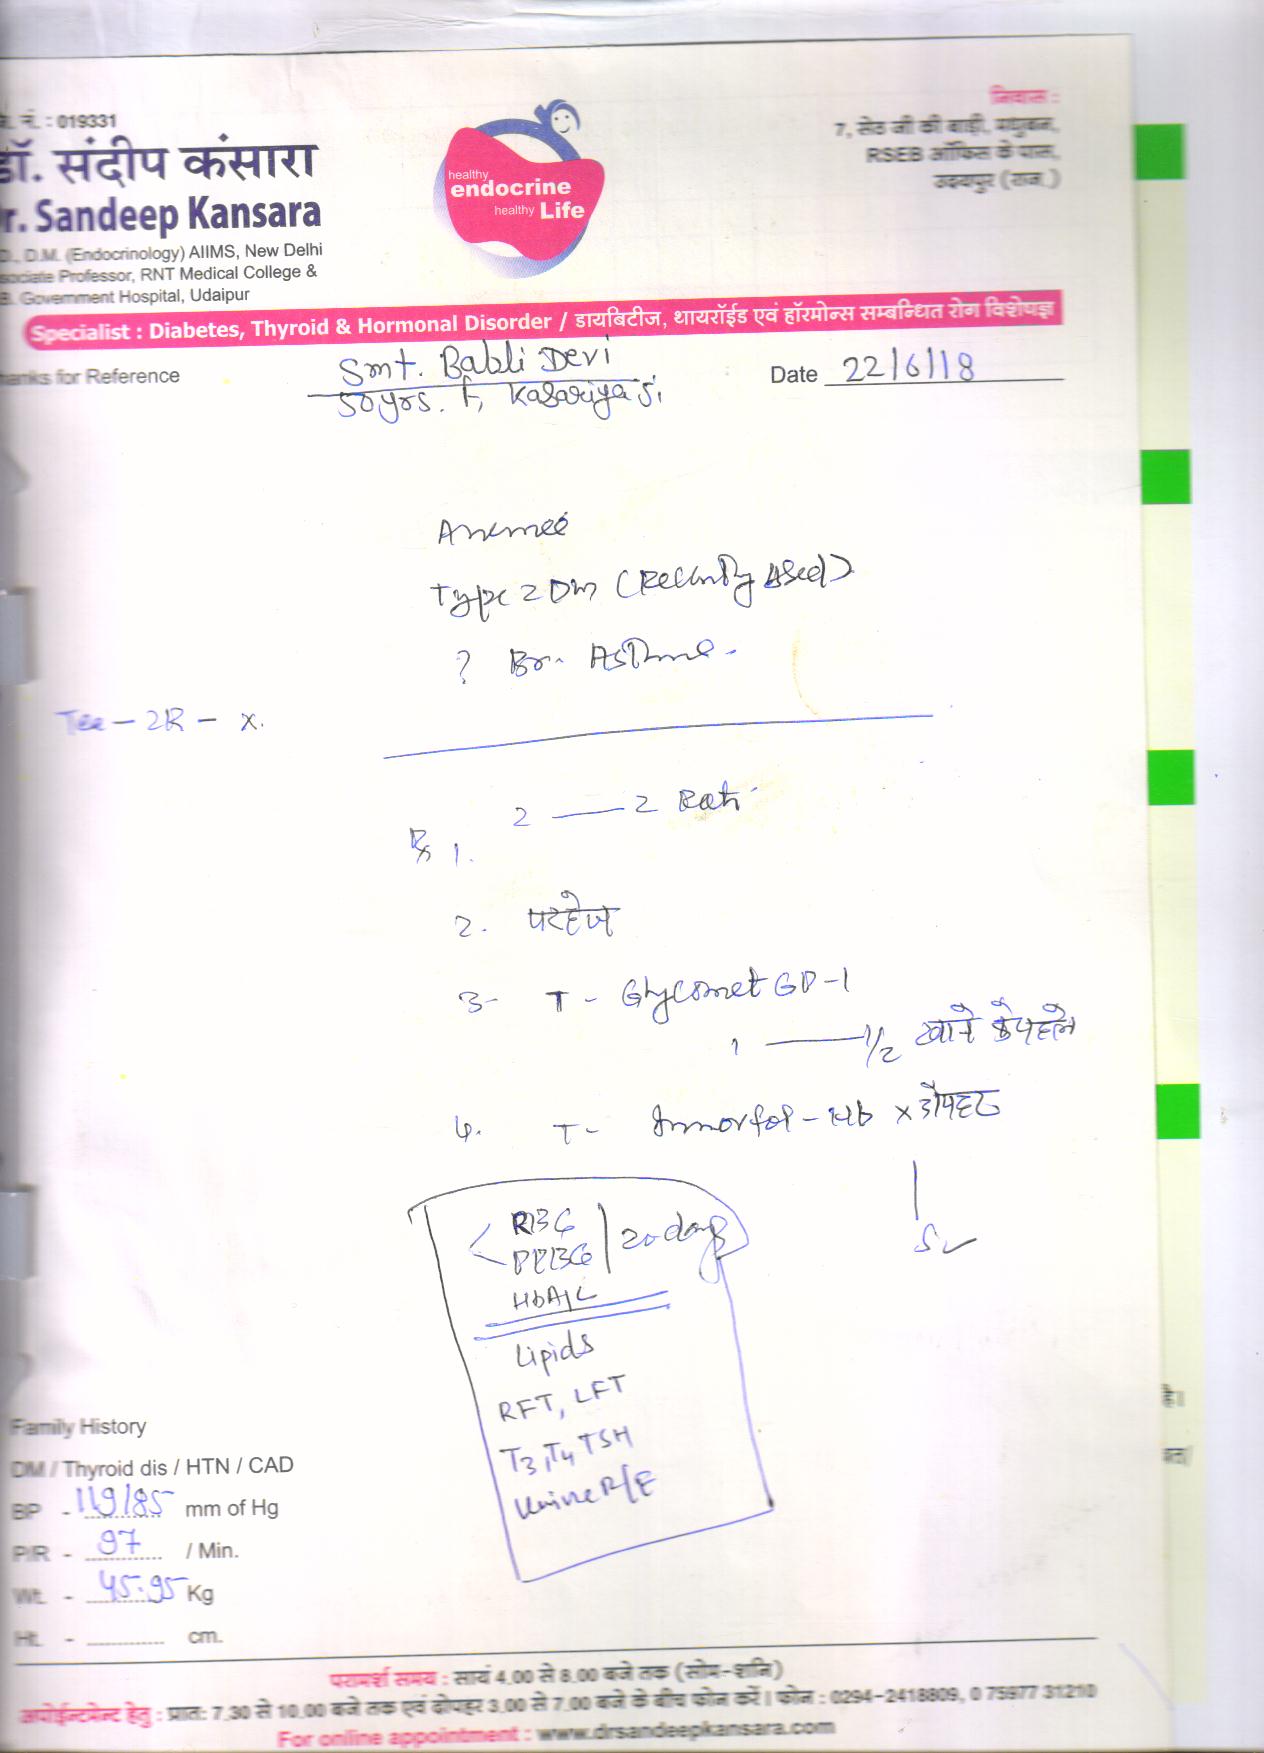 नं. : 019331
डॉ. संदीप कंसारा
r. Sandeep Kansara
D., D.M. (Endocrinology) AIIMS, New Delhi
sociate Professor, RNT Medical College &
B. Government Hospital, Udaipur
healthy
endocrine
healthy Life
निवास :
7, सेठ जी की बाड़ी, मधुबन,
RSEB ऑफिस के पास,
उदयपुर (राज.)
Specialist : Diabetes, Thyroid & Hormonal Disorder / डायबिटीज, थायरॉईड एवं हॉरमोन्स सम्बन्धित रोग विशेषज्ञ
hanks for Reference
Smt. Babli Devi
Date 22/6/18
50yrs. f, Kasariya Ji
Type 2 DM
? Br. Asthma
2 — 2 Roti
Rx 1.
2. परहेज
3- T - Glycomet GP-1
1 — 1/2 खाने के पहले
4. T-
RBG
PPBG
20 days
HbA1C
Lipids
RFT, LFT
T3, T4 TSH
Urine R/E
Family History
DM / Thyroid dis / HTN / CAD
BP - 119/85 mm of Hg
P/R - 97 / Min.
Wt. - 45.95 Kg
Ht. - cm.
है।
परामर्श समय : सायं 4.00 से 8.00 बजे तक (सोम-शनि)
अपोईन्टमेन्ट हेतु : प्रातः 7.30 से 10.00 बजे तक एवं दोपहर 3.00 से 7.00 बजे के बीच फोन करें। फोन : 0294-2418809, 0 75977 31210
For online appointment : www.drsandeepkansara.com